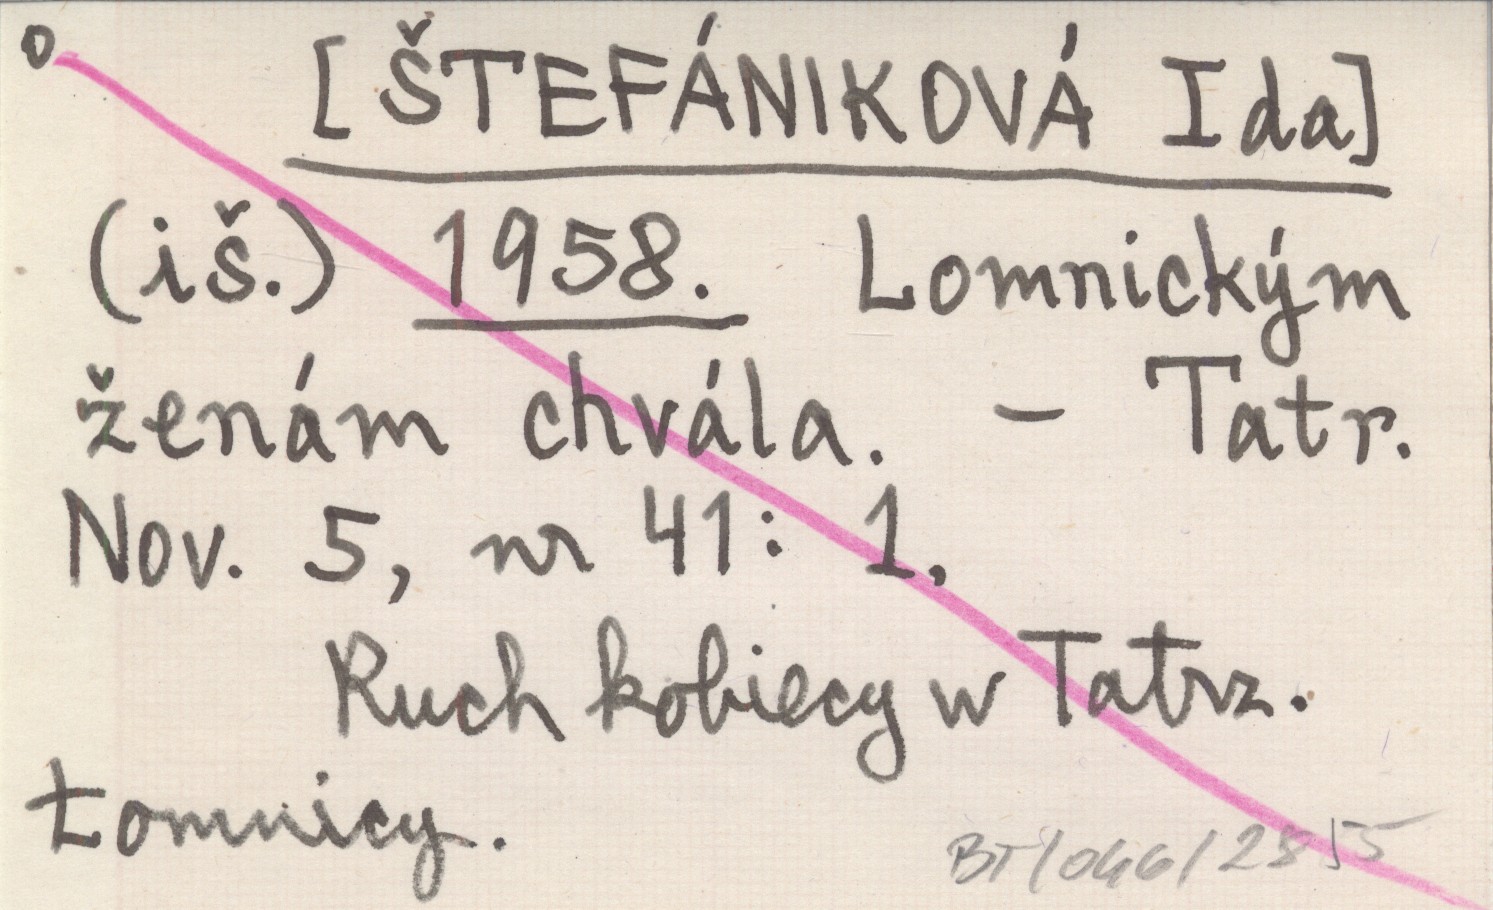 o
[ŠTEFÁNIKOVÁ Ida]
(iš.) 1958. Lomnickým
ženám chvála. – Tatr.
Nov. 5, nr 41: 1.
Ruch kobiecy w Tatrz.
Łomnicy.
BT/046/2855